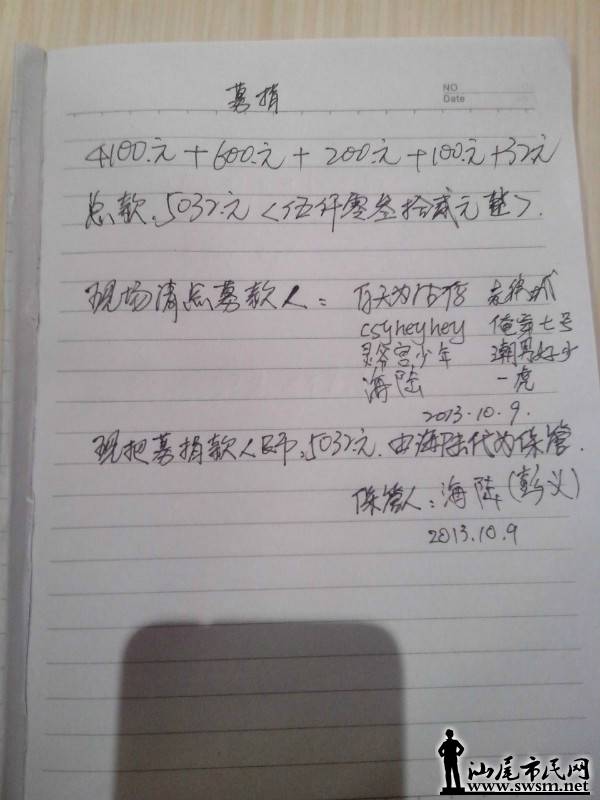 NO
Date
募捐
4100.元+600.元+200.元+100.元+32元
总款.5032.元<伍仟零叁拾贰元整>.
现场清点募款人:
csyheyhey 俺第七号
灵爷宫少年 潮男好少
海陆 一虎
2013.10.9.
现把募捐款人民币.5032.元.由海陆代为保管.
保管人:海陆(彭义)
2013.10.9
汕尾市民网
www.swsm.net